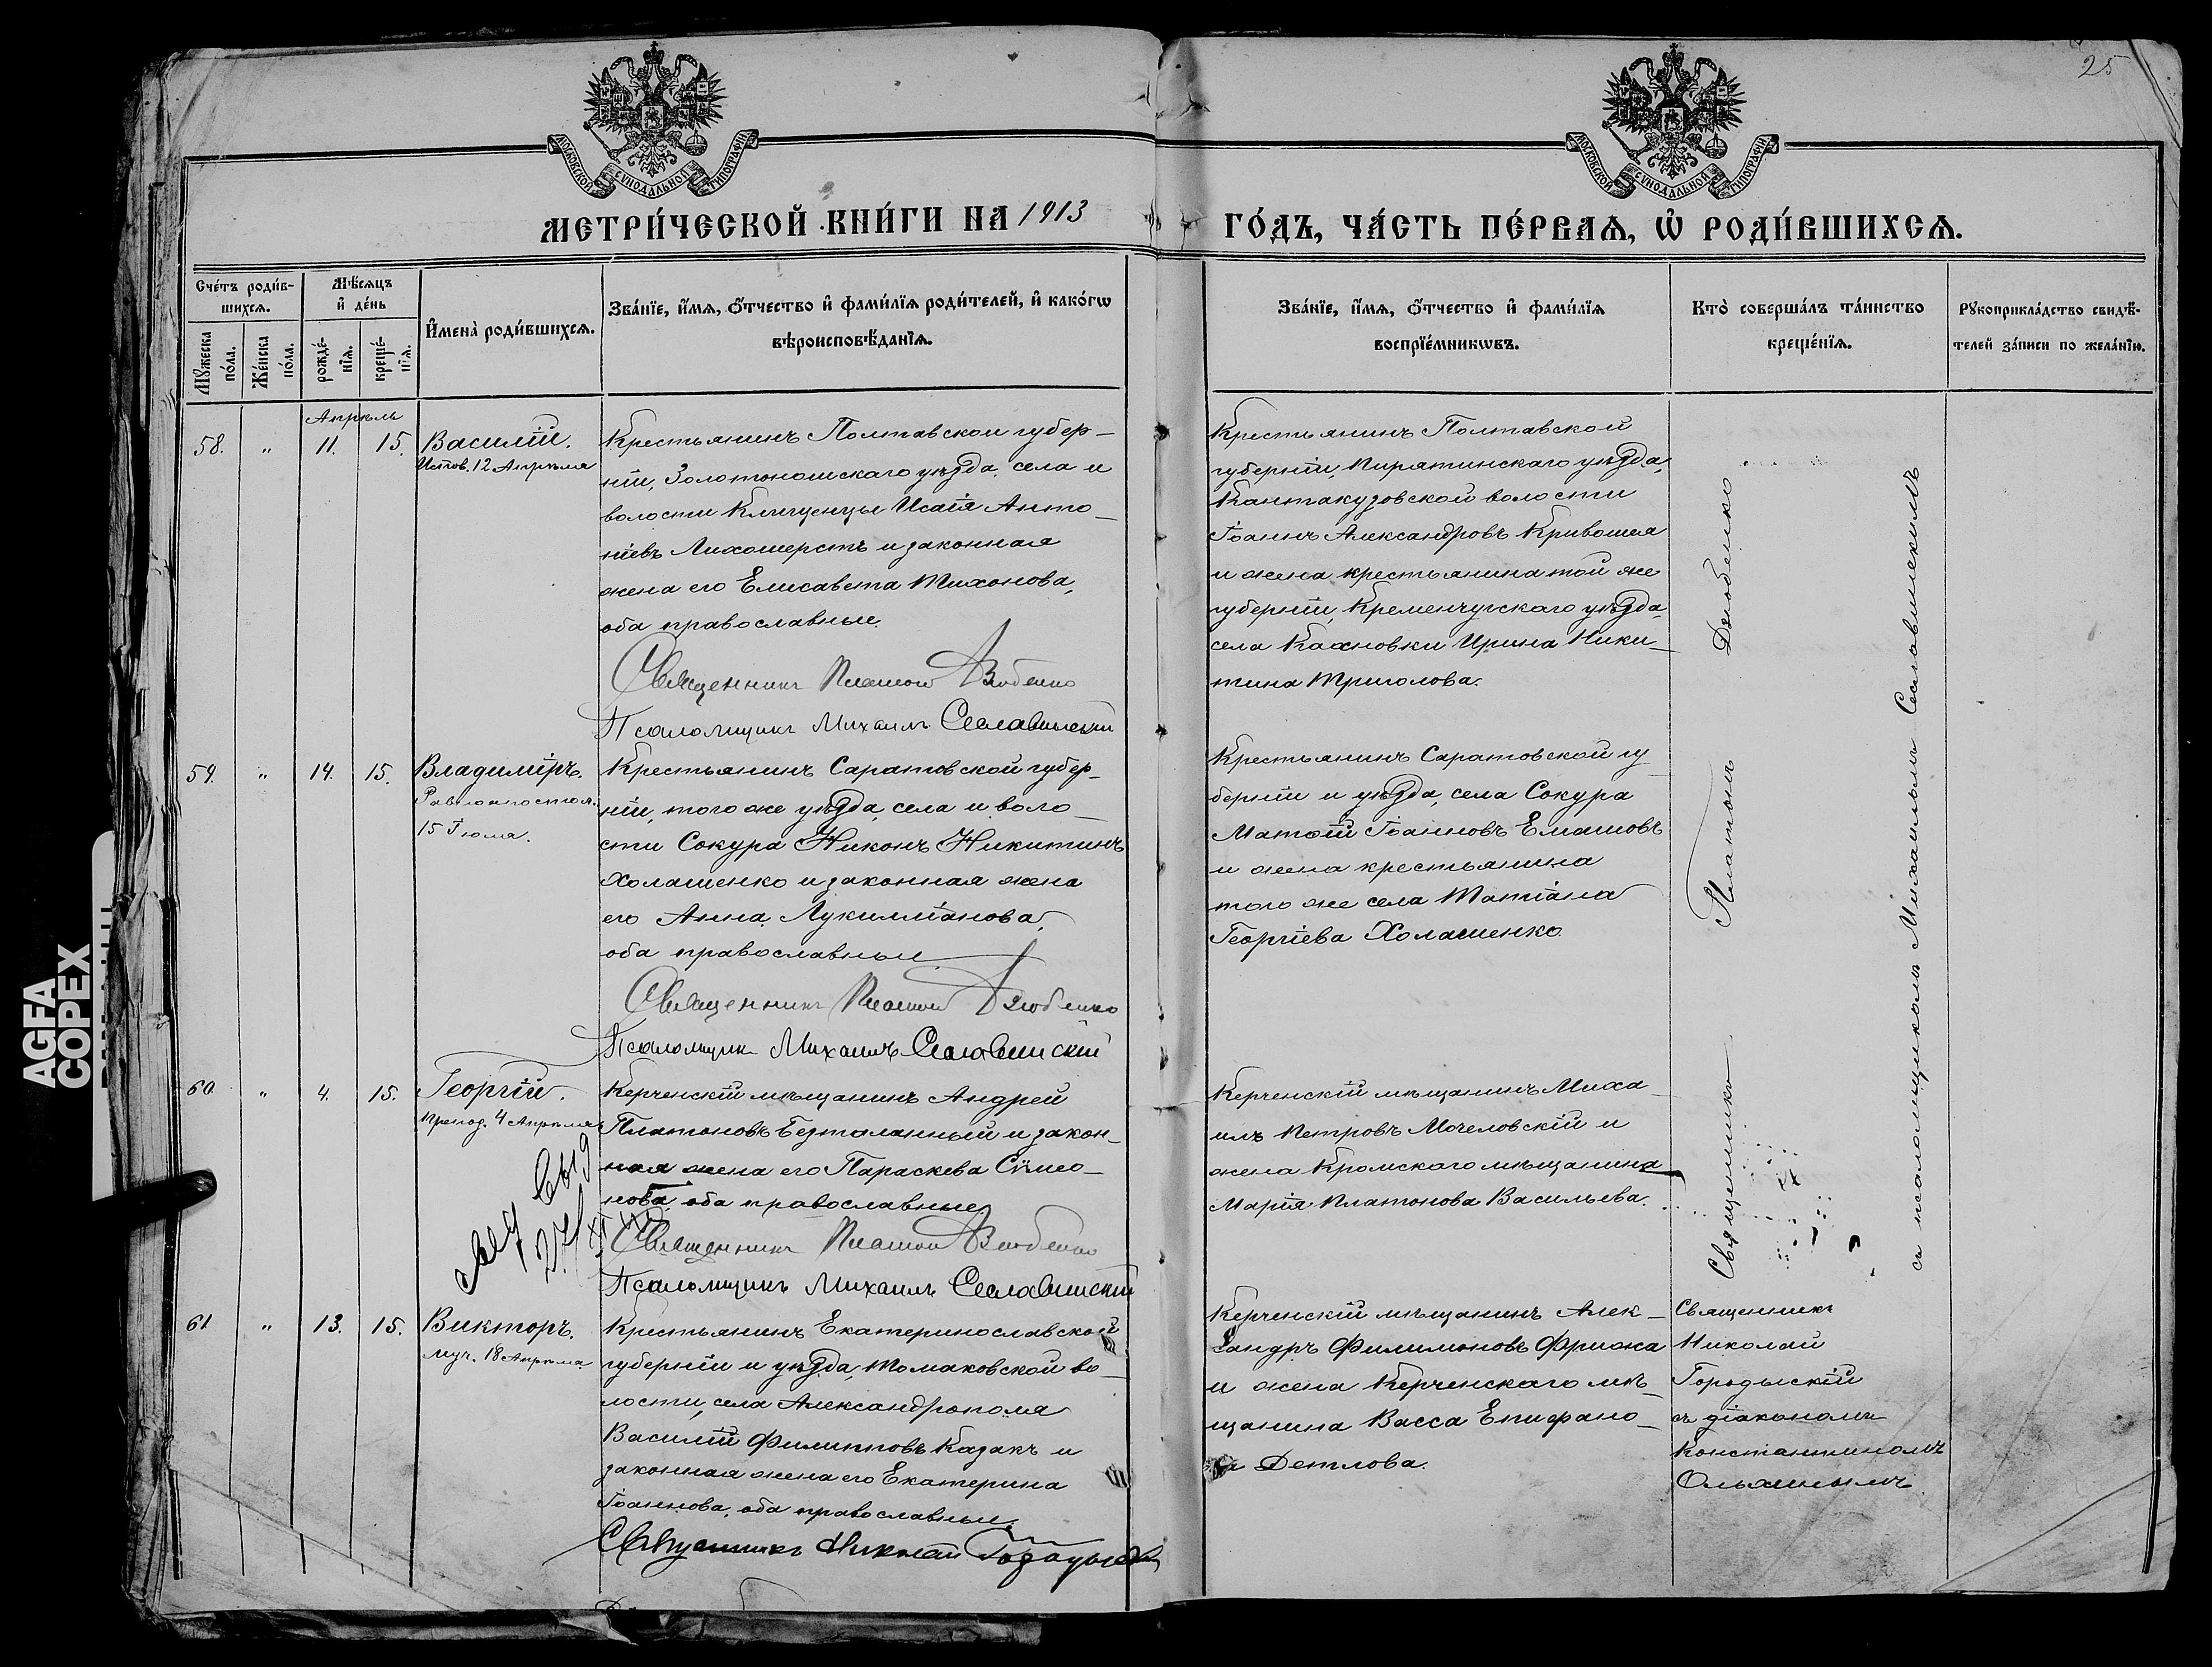 25
МОСКОВСКОЙ СУНОДАЛЬНОЙ ТИПОГРАФІИ
МОСКОВСКОЙ СУНОДАЛЬНОЙ ТИПОГРАФІИ
МЕТРИ́ЧЕСКОЙ КНИ́ГИ НА 1913
ГО́ДЪ, ЧА́СТЬ ПЕ́РВАѦ, Ѡ҆ РОДИ́ВШИХСѦ.
Сче́тъ роди́в-
шихсѧ.
Мꙋжеска
по́ла.
Же́нска
по́ла.
Мѣ́сѧцъ
и҆ де́нь
рожде́-
нїѧ.
креще́-
нїѧ.
И҆мена̀ роди́вшихсѧ.
Зва́нїе, и҆́мѧ, ѻ҆́тчество и҆ фами́лїѧ роди́телей, и҆ како́гѡ
вѣроисповѣ́данїѧ.
Зва́нїе, и҆́мѧ, ѻ҆́тчество и҆ фами́лїѧ
воспрїе́мникѡвъ.
Кто̀ соверша́лъ та́инство
креще́нїѧ.
Рꙋкоприкла́дство свидѣ́-
телей за́писи по жела́нїю.
Апрѣль
58. " 11. 15. Василій.
Испов. 12 Апрѣля
Крестьянинъ Полтавской губер-
ніи, Золотоношскаго уѣзда, села и
волости Клищенцы Исаія Анто-
ніевъ Лихошерстъ и законная
жена его Елисавета Тихонова,
оба православные.
Священникъ Платонъ Дзюбенко
Псаломщикъ Михаилъ Сеславинскій
Крестьянинъ Полтавской
губерніи, Пирятинскаго уѣзда,
Кантакузовской волости
Іоаннъ Александровъ Кривошея
и жена крестьянина той же
губерніи, Кременчугскаго уѣзда,
села Кахновки Ирина Ники-
тина Триголова.
59. " 14. 15. Владиміръ.
Равноапостол.
15 Іюля.
Крестьянинъ Саратовской губер-
ніи, того же уѣзда, села и воло-
сти Сокура Никонъ Никитинъ
Холашенко и законная жена
его Анна Лукилліанова,
оба православные
Священникъ Платонъ Дзюбенко
Псаломщикъ Михаилъ Сеславинскій
Крестьянинъ Саратовской гу-
берніи и уѣзда, села Сокура
Іоанновъ Елашовъ
и жена крестьянина
того же села Татіана
Георгіева Холашенко.
60. " 4. 15. Георгій.
Препод. 4 Апрѣля
Керченскій мѣщанинъ Андрей
Платоновъ Безталанный и закон-
ная жена его Параскева Сѵмео-
нова, оба православные.
Священникъ Платонъ Дзюбенко
Псаломщикъ Михаилъ Сеславинскій
Керченскій мѣщанинъ Миха-
илъ Петровъ Мочеловскій и
жена Кромскаго мѣщанина
Марія Платонова Васильева.
Священникъ Платонъ Дзюбенко
съ псаломщикомъ Михаиломъ Сеславинскимъ
61. " 13. 15. Викторъ.
муч. 18 Апрѣля
Крестьянинъ Екатеринославской
губерніи и уѣзда, Томаковской во-
лости, села Александрополя
Василій Филипповъ Казакъ и
законная жена его Екатерина
Іоаннова, оба православные.
Священникъ Николай Городыскій
Керченскій мѣщанинъ Алек-
сандръ Филимоновъ Фрижа
и жена Керченскаго мѣ-
щанина Васса Епифано-
ва Детлова.
Священникъ
Николай
Городыскій
съ діакономъ
Константиномъ
Ольхинымъ.
AGFA
COPEX